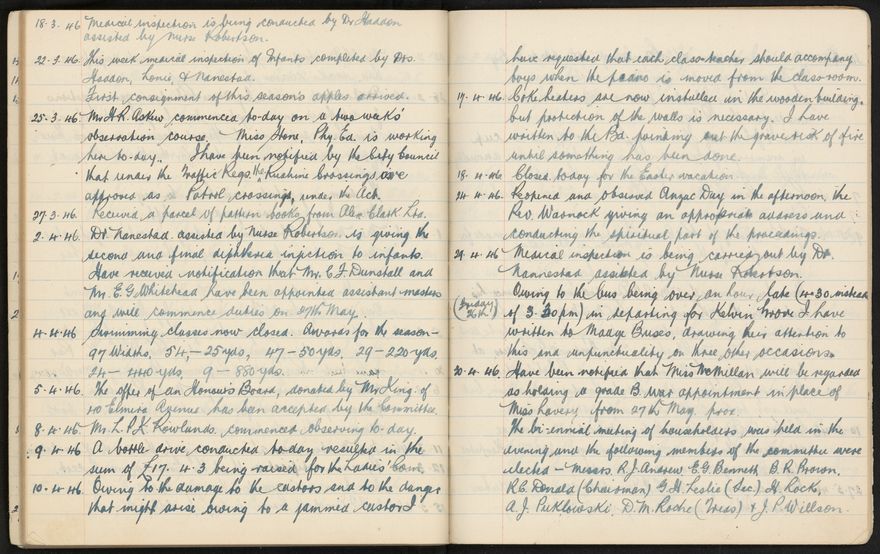 18.3.46 Medical inspection is being conducted by Dr Haddon
assisted by Nurse Robertson.
22.3.46. This week medical inspection of Infants completed by Drs.
Haddon, Lonie, & Nanestad.
First consignment of this season's apples arrived.
25.3.46 Mr H.R. Askew commenced to-day on a two weeks'
observation course. Miss Hone, Phy. Ed. is working
here to-day. I have been notified by the City Council
that under the Traffic Regs. the Pushine Crossings are
approved as Patrol crossings, under the Act.
27.3.46. Received a parcel of pattern books from Alex Clark Ltd.
2.4.46. Dr Nanestad assisted by Nurse Robertson is giving the
second and final diphtheria injection to infants.
Have received notification that Mr. C.F. Dunstall and
Mr. E.G. Whitehead have been appointed assistant masters
and will commence duties on 27th May.
4.4.46 Swimming classes now closed. Awards for the season—
97 Widths, 54,—25yds, 47—50yds, 29—220yds.
24—440yds, 9—880yds.
5.4.46. The offer of an Honours Board, donated by Mr King of
40 Elmira Avenue has been accepted by the Committee.
8.4.45 Mr. L.P.K. Rowlands. commenced observing to-day.
9.4.46 A bottle drive conducted to-day resulted in the
sum of £17.4.3 being raised for the Ladies' Com.
10.4.46. Owing to the damage to the castors and to the danger
that might arise owing to a jammed castor I
have requested that each class-teacher should accompany
boys when the piano is moved from the class-room.
17.4.46. Coke heaters are now installed in the wooden building.
but protection of the walls is necessary. I have
written to the Bd. pointing out the grave risk of fire
until something has been done.
18.4.46 Closed today for the Easter vacation.
24.4.46 Reopened and observed Anzac Day in the afternoon, the
Rev. Warnock giving an appropriate address and
conducting the spiritual part of the proceedings.
29.4.46 Medical inspection is being carried out by Dr.
Nannestad assisted by Nurse Robertson.
Owing to the bus being over an hour late (4.30 instead
(Friday 26th!) of 3.30pm) in departing for Kelvin Grove I have
written to Madge Buses, drawing their attention to
this and unpunctuality on three other occasions.
30.4.46. Have been notified that Miss McMillan will be regarded
as holding a grade B. war appointment in place of
Miss Havers, from 27th May, prox.
The bi-ennial meeting of householders was held in the
evening and the following members of the committee were
elected — Messrs. R.J. Andrew E.G. Bennett B.R. Brown,
R.C. Donald (Chairman) G.H. Leslie (Sec.) H. Rock,
A.J. Puklowski, D.M. Roche (Treas) & J.P. Willson.